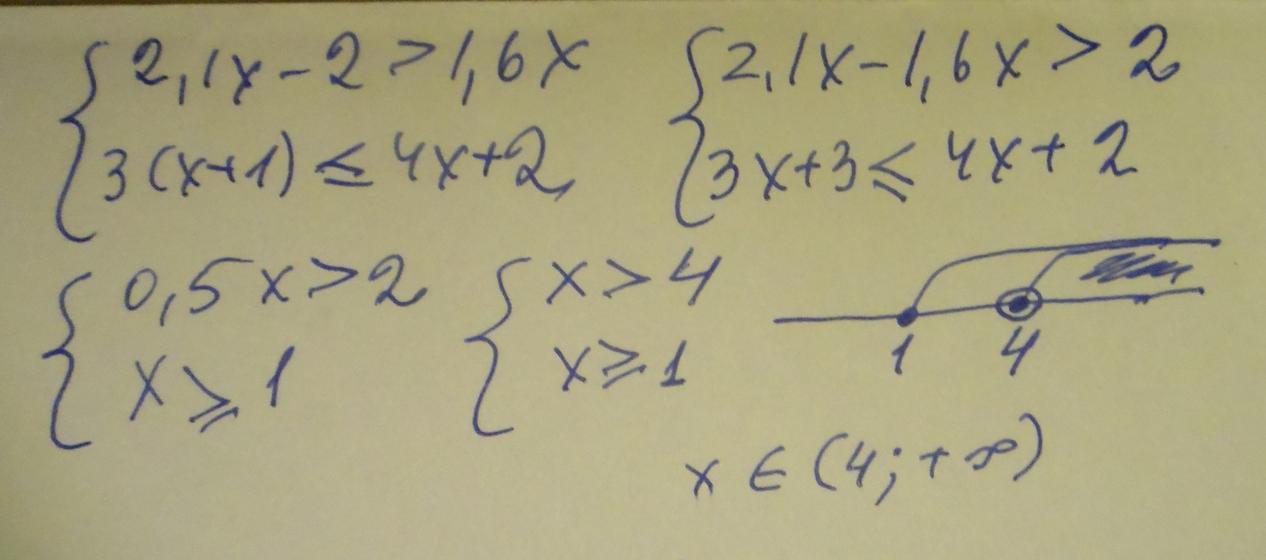 2,1x-2>1,6x
3(x+1)≤4x+2,
2,1x-1,6x>2
3x+3≤4x+2
0,5x>2
x≥1
x>4
x≥1
1 4
x∈(4;+∞)